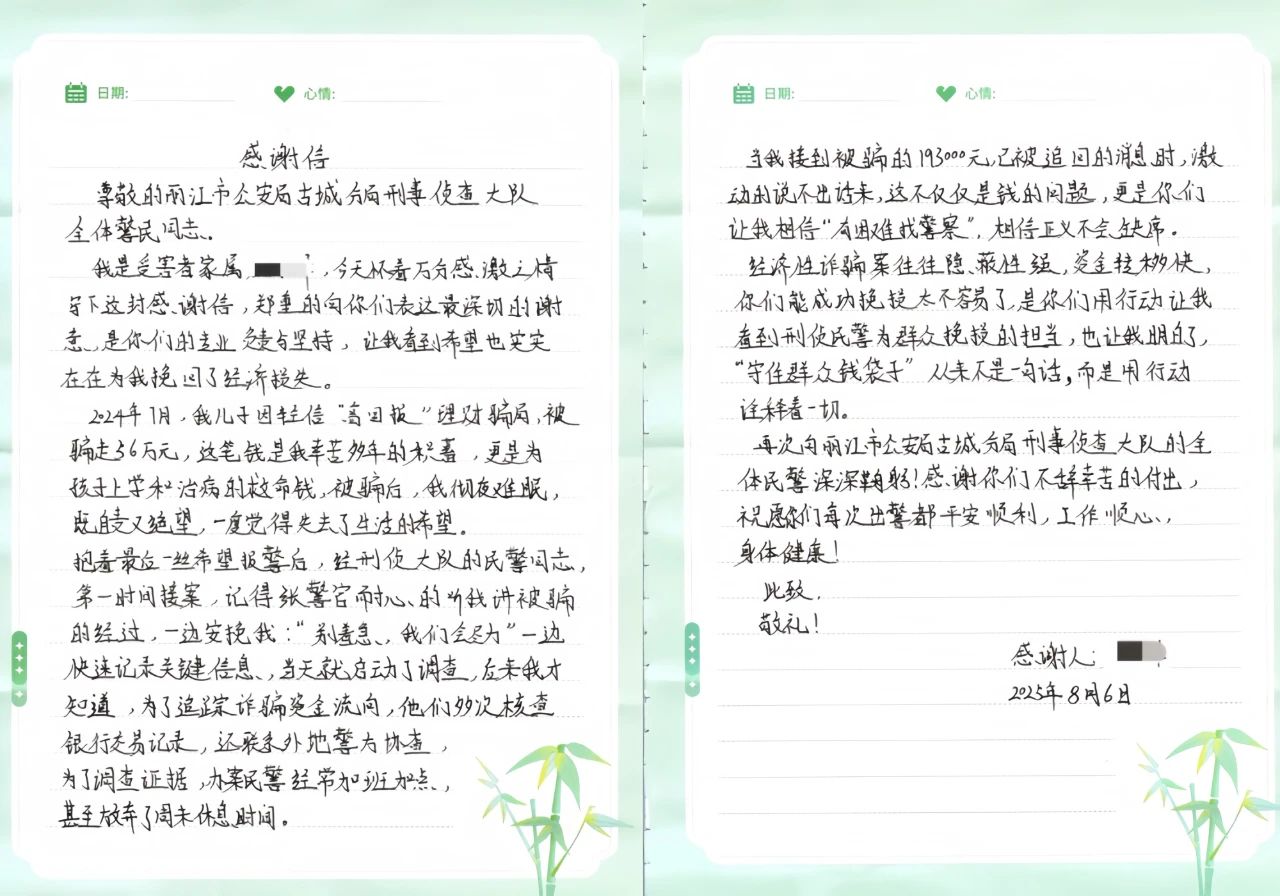 日期:
心情:
感谢信
尊敬的丽江市公安局古城分局刑事侦查大队
全体警民同志、
我是受害者家属, , 今天怀着万分感激之情
写下这封感谢信, 郑重的向你们表达最深切的谢
意、是你们的专业 负责与坚持, 让我看到希望也实实
在在为我挽回了经济损失。
2024年1月, 我儿子因轻信“高回报”理财骗局, 被
骗走56万元, 这笔钱是我辛苦多年的积蓄, 更是为
孩子上学和治病的救命钱, 被骗后, 我彻夜难眠,
既自责又绝望, 一度觉得失去了生活的希望。
抱着最后一丝希望报警后, 经刑侦大队的民警同志,
第一时间接案, 记得张警官耐心的听我讲被骗
的经过, 一边安抚我:“别着急、我们会尽力”一边
快速记录关键信息、, 当天就启动了调查, 后来我才
知道, 为了追踪诈骗资金流向, 他们多次核查
银行交易记录, 还联系外地警方协查,
为了调查证据, 办案民警经常加班加点、
甚至放弃了周末休息时间。
日期:
心情:
当我接到被骗的193000元,已被追回的消息时, 激
动的说不出话来, 这不仅仅是钱的问题, 更是你们
让我相信“有困难找警察”, 相信正义不会缺席。
经济性诈骗案往往隐蔽性强, 资金转移快,
你们能成功挽损太不容易了, 是你们用行动让我
看到刑侦民警为群众挽损的担当, 也让我明白了,
“守住群众钱袋子”从来不是一句话, 而是用行动
诠释着一切。
再次向丽江市公安局古城分局刑事侦查大队的全
体民警深深鞠躬! 感谢你们不辞辛苦的付出,
祝愿你们每次出警都平安顺利, 工作顺心、,
身体健康!
此致,
敬礼!
感谢人:
2025年8月6日